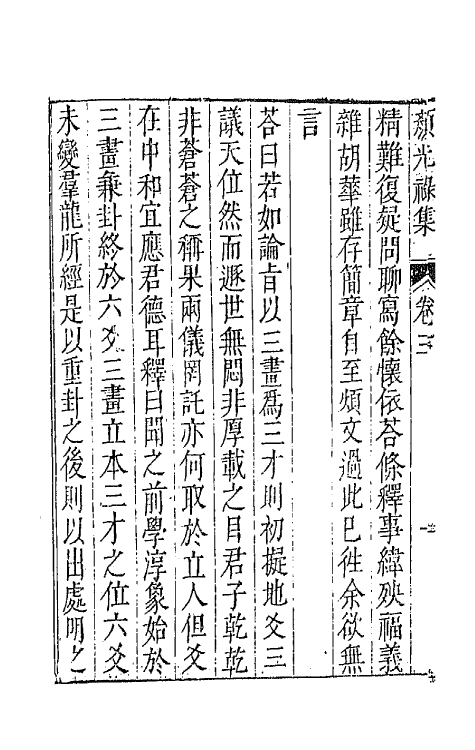 顏光祿集 卷三
精難復疑問聊寫餘懷依荅條釋事緯殃福義
雜胡華雖存簡章自至煩文過此巳徃余欲無
言
荅曰若如論㫖以三畫爲三才則初擬地爻三
議天位然而遯世無悶非厚載之目君子乾乾
非蒼蒼之稱果兩儀罔託亦何取於立人但爻
在中和宜應君德耳釋曰聞之前學淳象始於
三畫兼卦終於六爻三畫立本三才之位六爻
未變羣龍所經是以重卦之後則以出處明之